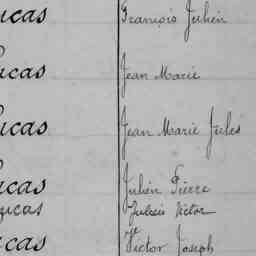 ucas François Julien
ucas Jean Marie
ucas Jean Marie Jules
ucas Julien Pierre
ucas Victor
ucas Victor Joseph